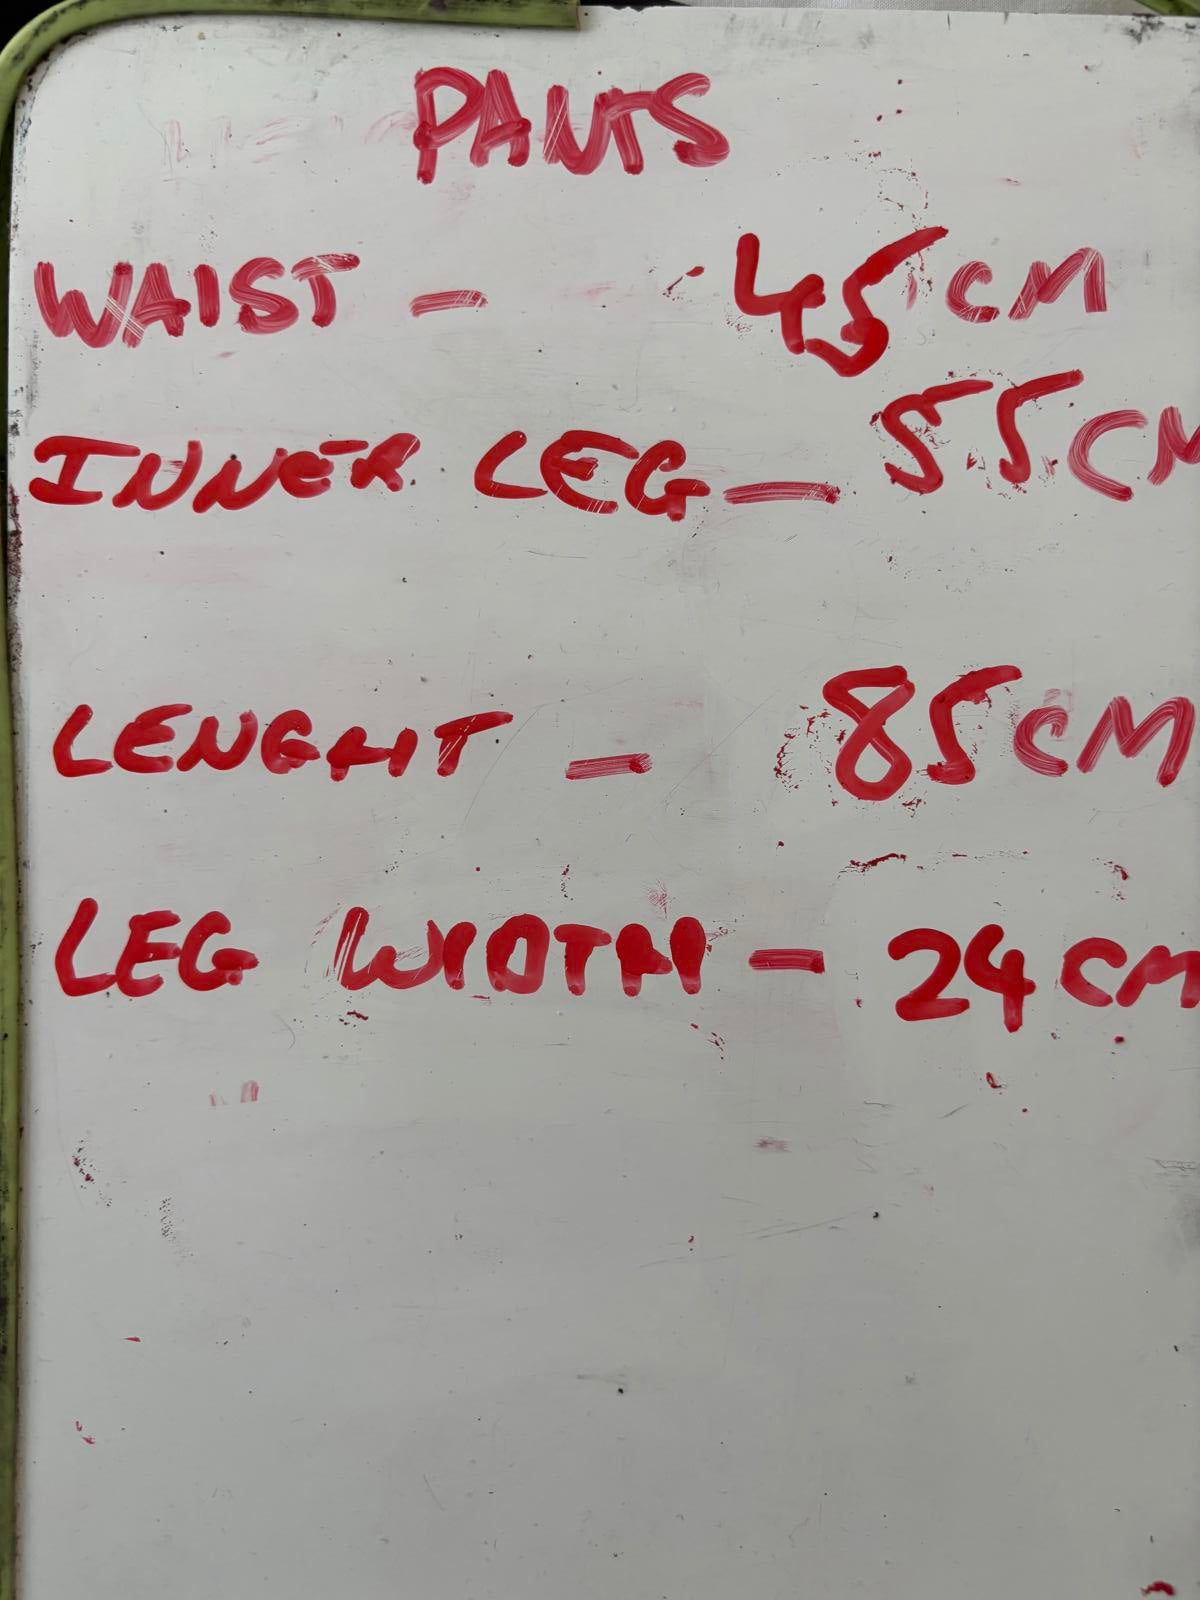 PANTS
WAIST - 45 CM
INNER LEG - 55 CM
LENGHT - 85 CM
LEG WIDTH - 24 CM